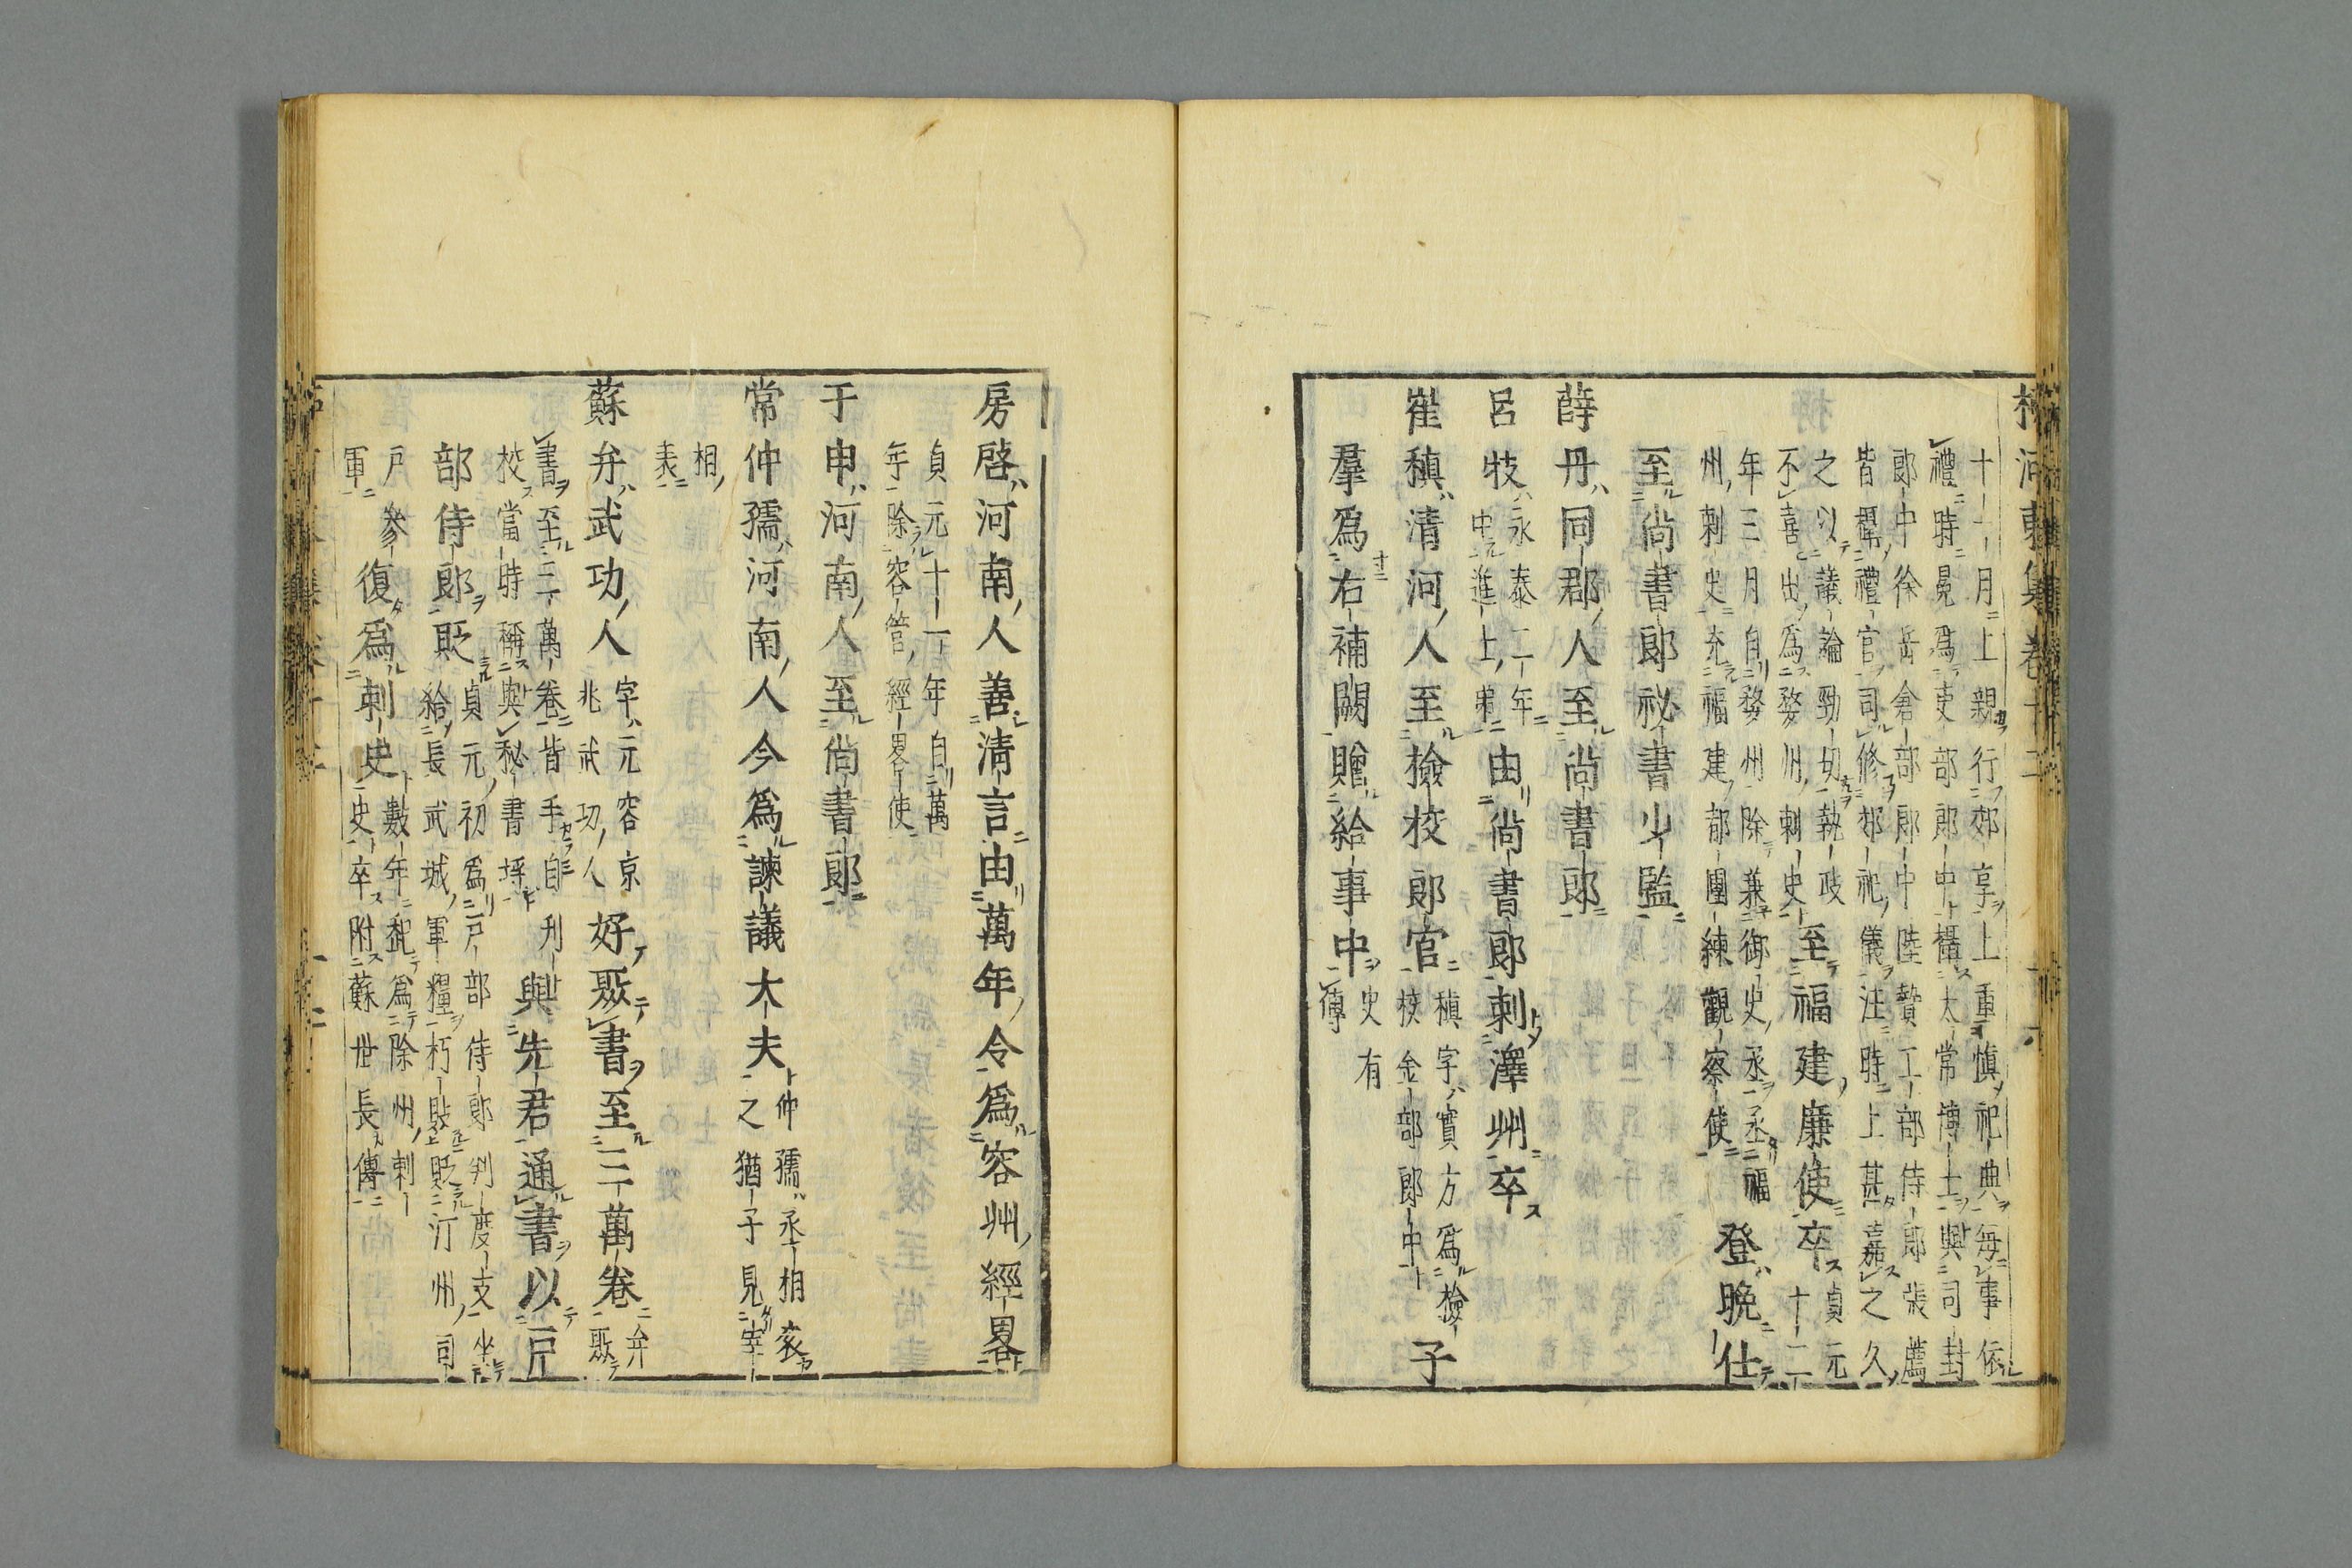 十一月上親行郊享上重慎祀典每事依
禮時晃爲吏部郎中攝太常博士與司封
郎中徐岱倉部郎中陸贄工部侍郎張薦
皆攝禮官司修郊祀儀注時上甚嘉之久
之以議論勁切執政
不喜出爲婺州刺史
至福建廉使卒
貞元
十二
年三月自婺州除兼御史丞丞福
州刺史充福建都團練觀察使
登晚仕
至尚書郎祕書少監
薛丹同郡人至尚書郎
呂牧
永泰二年
中進士第
由尚書郎刺澤州卒
崔稹清河人至檢校郎官
稹字實方爲檢
校金部郎中
子
羣爲右補闕贈給事中
史有
傳
房啓河南人善清言由萬年令爲容州經畧
貞元十一年自萬
年除容管經畧使
于申河南人至尚書郎
常仲孺河南人今爲諫議大夫
仲孺丞相衮
之猶子見宰
相
表
蘇弁武功人
字元容京
兆武功人
好聚書至三萬卷
弁
聚
書至二萬卷皆手自刊
校當時稱與秘書埒
與先君通書以戶
部侍郎貶
貞元初爲戶部侍郎判度支坐
給長武城軍糧朽敗貶汀州司
戶參
軍
復爲刺史
數年起爲除州刺
史卒附蘇世長傳